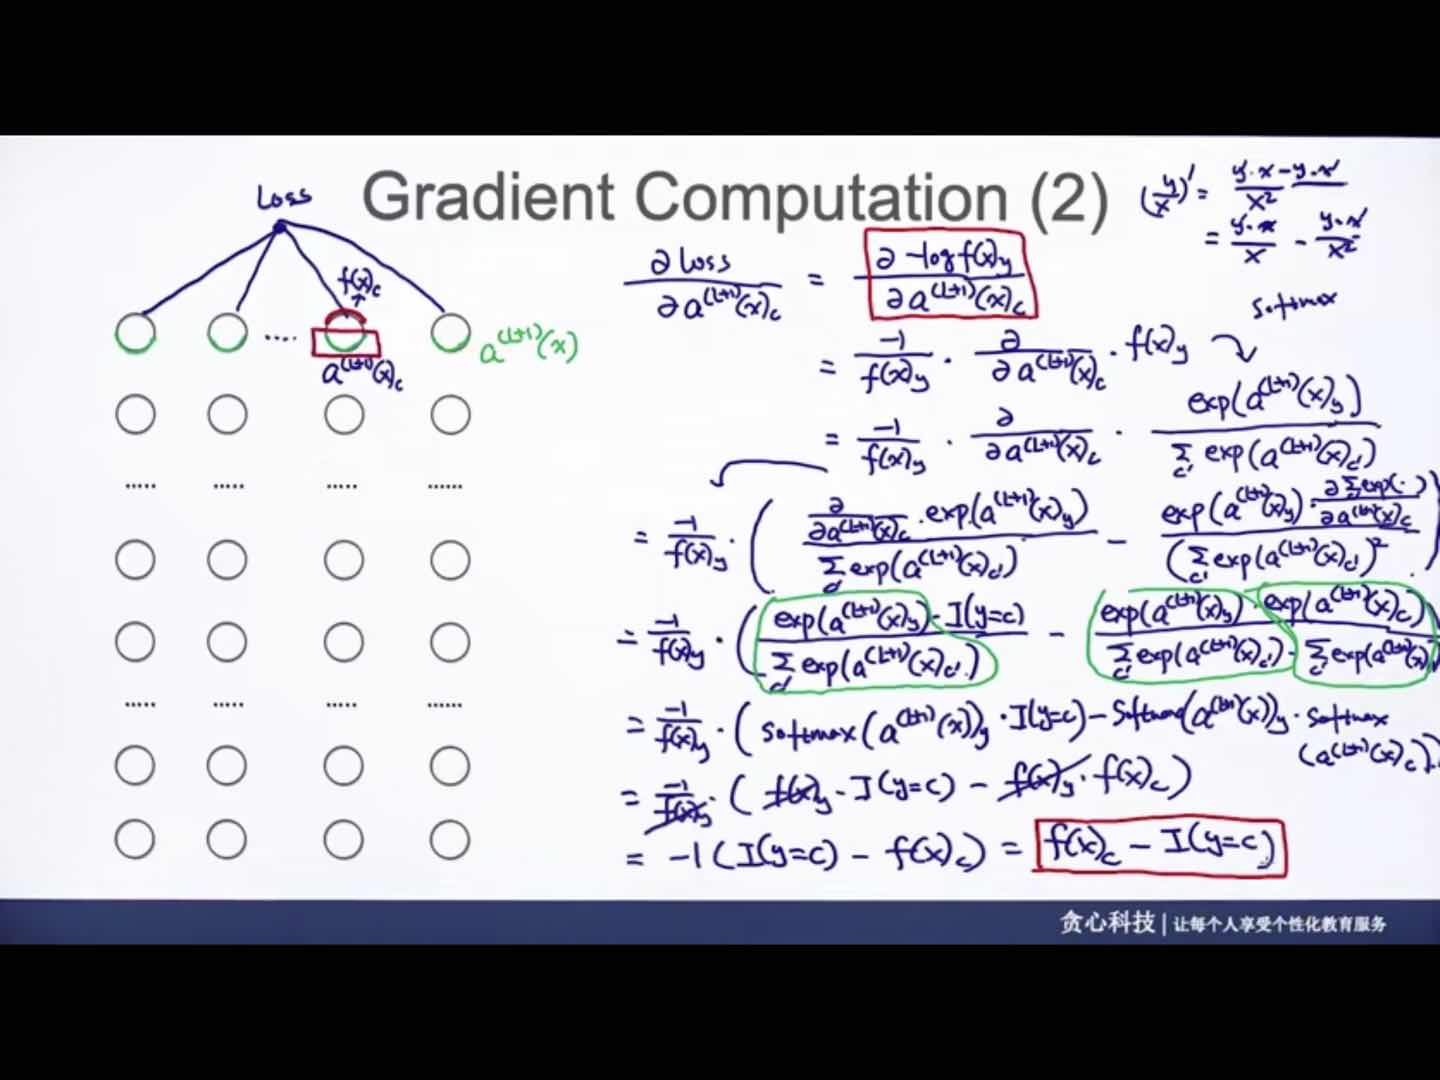 Gradient Computation (2)
Loss
f(x)_c
a^{(L+1)}(x)_c
a^{(L+1)}(x)
(y/x)' = (y'·x - y·x')/x²
= (y'·x)/x - (y·x')/x²
∂ Loss / ∂a^{(L+1)}(x)_c = ∂ -log f(x)_y / ∂a^{(L+1)}(x)_c
softmax
= -1/f(x)_y · ∂/∂a^{(L+1)}(x)_c · f(x)_y
= -1/f(x)_y · ∂/∂a^{(L+1)}(x)_c · exp(a^{(L+1)}(x)_y) / Σ_{c'} exp(a^{(L+1)}(x)_{c'})
= -1/f(x)_y · ( ∂/∂a^{(L+1)}(x)_c · exp(a^{(L+1)}(x)_y) / Σ_{c'} exp(a^{(L+1)}(x)_{c'}) - exp(a^{(L+1)}(x)_y) · ∂Σexp(·)/∂a^{(L+1)}(x)_c / (Σ_{c'} exp(a^{(L+1)}(x)_{c'})² )
= -1/f(x)_y · ( exp(a^{(L+1)}(x)_y) · I(y=c) / Σ_{c'} exp(a^{(L+1)}(x)_{c'}) - exp(a^{(L+1)}(x)_y) · exp(a^{(L+1)}(x)_c) / Σ_{c'} exp(a^{(L+1)}(x)_{c'}) · Σ_{c'} exp(a^{(L+1)}(x) )
= -1/f(x)_y · ( softmax(a^{(L+1)}(x))_y · I(y=c) - softmax(a^{(L+1)}(x))_y · softmax
(a^{(L+1)}(x)_c) )
= -1/f(x)_y · ( f(x)_y · I(y=c) - f(x)_y · f(x)_c )
= -1 ( I(y=c) - f(x)_c ) = f(x)_c - I(y=c)
贪心科技 | 让每个人享受个性化教育服务